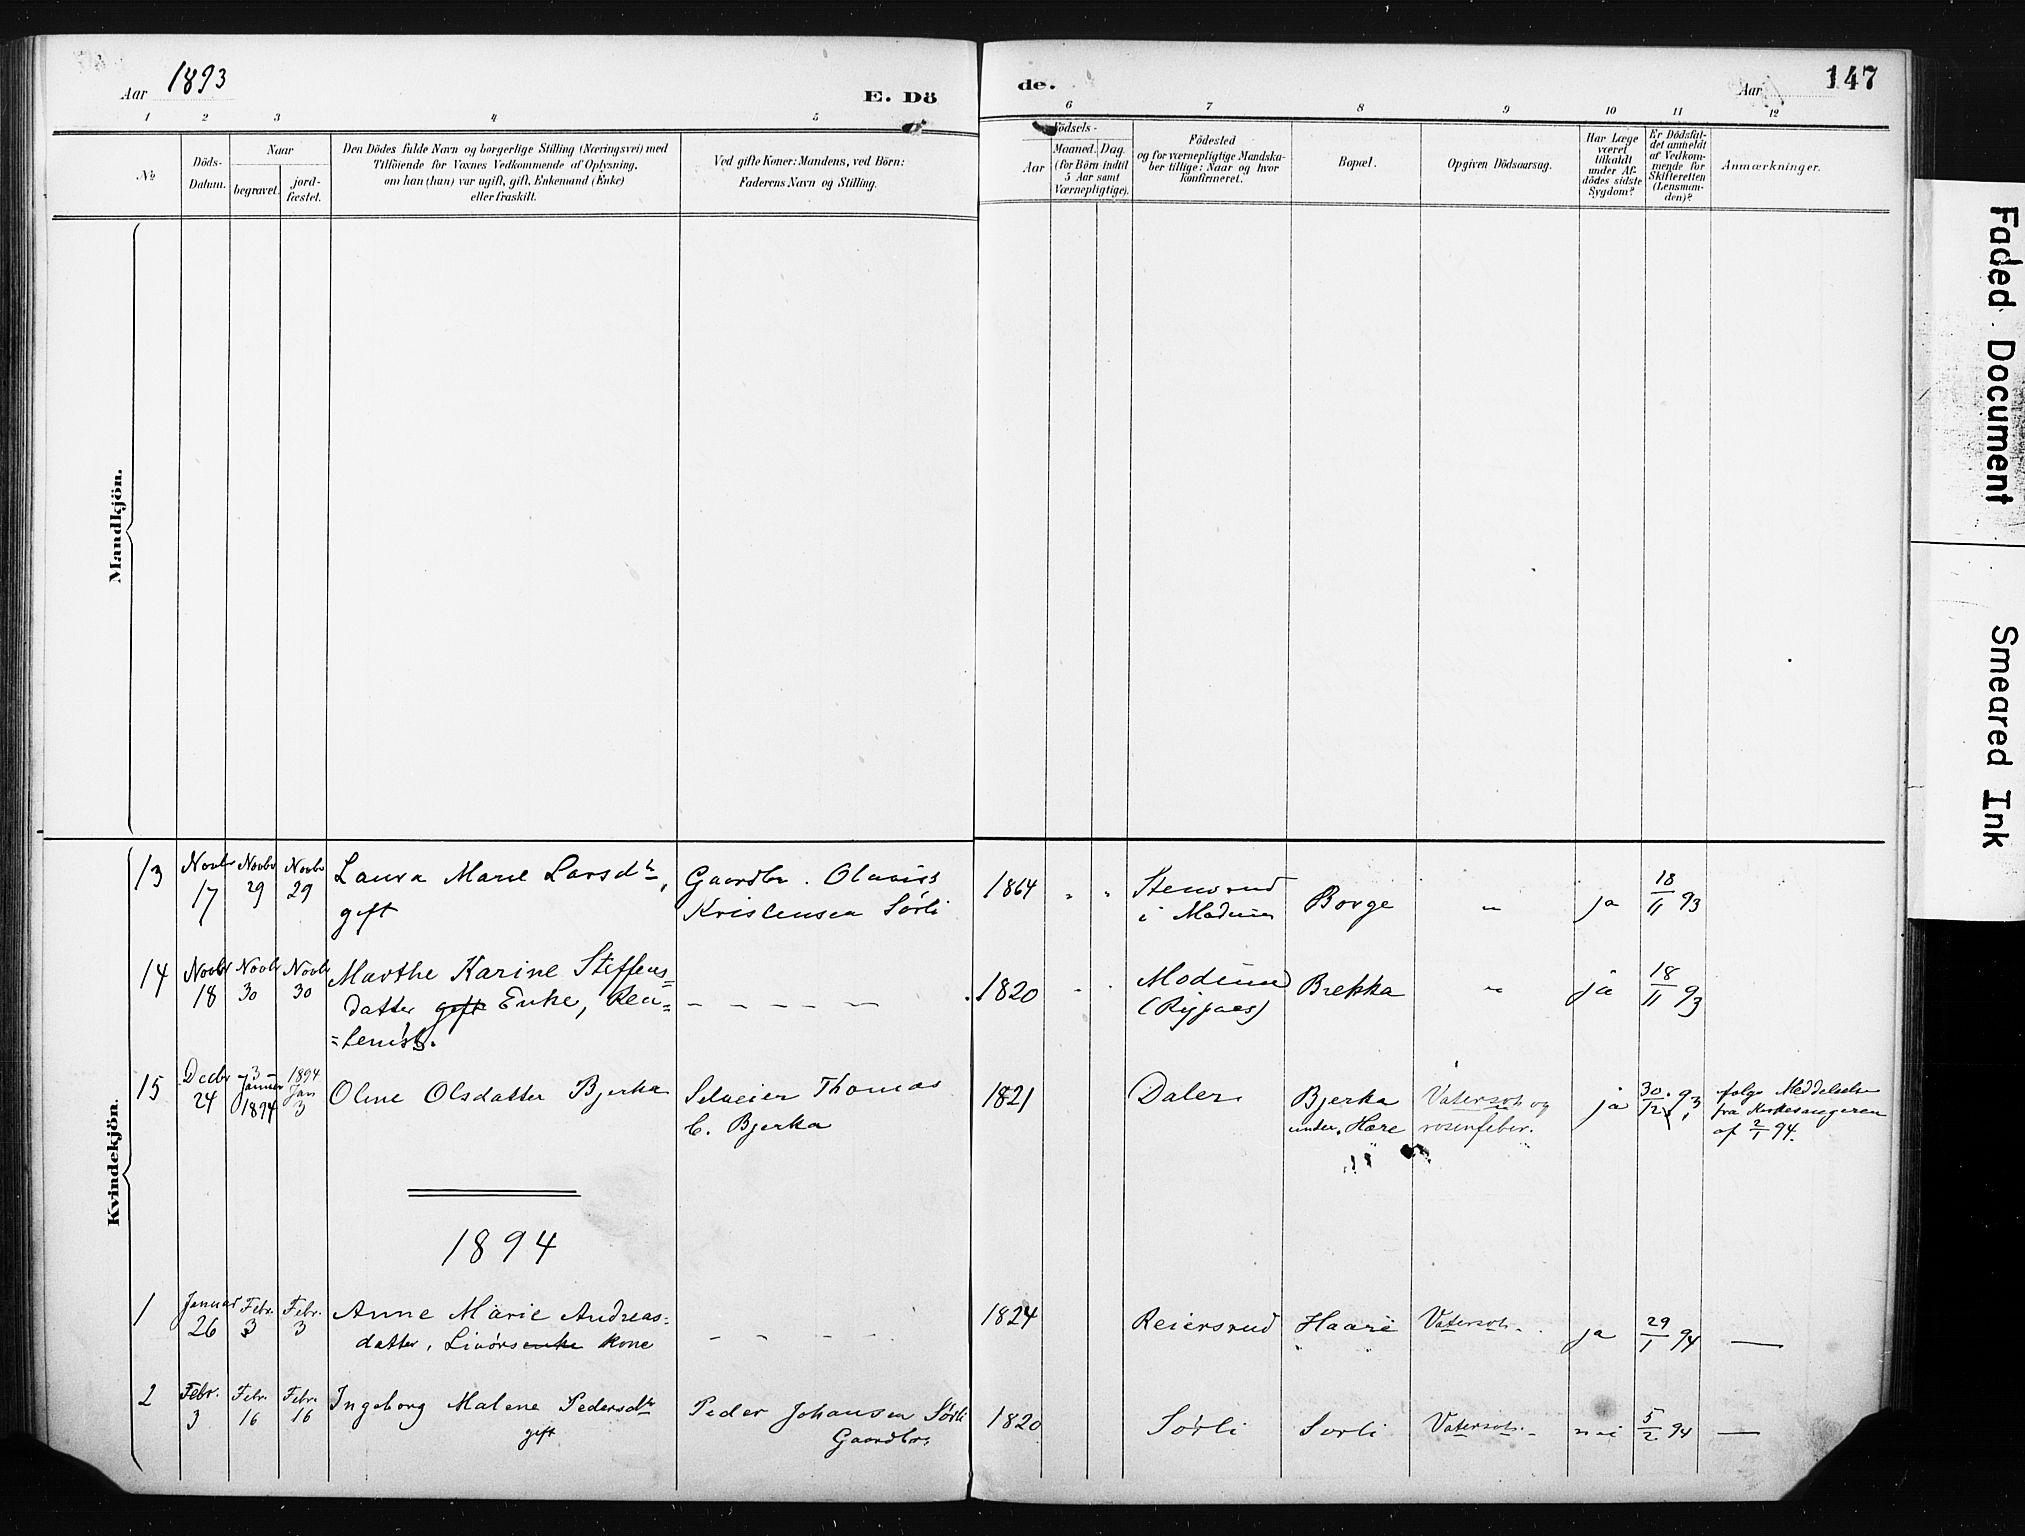 Aar 1893
E. Dö
de.
Aar
147
1 2 3 4 5 6 7 8 9 10 11 12
No
Döds-
Datum.
Naar
begravet.
jord-
fæstet.
Den Dödes fulde Navn og borgerlige Stilling (Næringsvei) med
Tilföiende for Voxnes Vedkommende af Oplysning,
om han (hun) var ugift, gift, Enkemand (Enke)
eller fraskilt.
Ved gifte Koner: Mandens, ved Börn:
Faderens Navn og Stilling.
Födsels-
Aar
Maaned. Dag.
(for Börn indtil
5 Aar samt
Værnepligtige).
Födested
og for værnepligtige Mandska-
ber tillige: Naar og hvor
konfirmeret.
Bopæl.
Opgiven Dödsaarsag.
Har Læge
været
tilkaldt
under Af-
dödes sidste
Sygdom?
Er Dödsfal-
det anmeldt
af Vedkom-
mende for
Skifteretten
(Lensman-
den)?
Anmærkninger.
Mandkjön.
Kvindekjön.
13 Novbr 17 Novbr 29 Novbr 29 Laura Marie Larsdtr, Gaardbr. Olaviss 1864 " " Stensrud Borge " ja 18/11 93
gift Kristensen Sørli i Modum
14 Novbr 18 Novbr 30 Novbr 30 Marthe Karine Steffens= – – – – – 1820 " " Modum Brekka " ja 18/11 93
datter gift Enke,
15 Decbr 24 3 Januar 1894 1894 Jan 3 Oline Olsdatter Bjerka Selveier Thomas 1821 Daler Bjerka Vatersot og ja 30/12 93 følge Meddelelse
C. Bjerka under Hære rosenfeber. fra Kirkesangeren
af 2/1 94.
1894
1 Januar 26 Febr. 3 Febr. 3 Anne Marie Andreas= – – – – 1824 Reiersrud Haare Vatersot. ja 29/1 94 —
datter, enke kone
2 Febr. 3 Febr. 16 Febr. 16 Ingeborg Malene Pedersdtr Peder Johansen Sørli 1820 Sørli Sørli Vatersot. nei 5/2 94 —
gift Gaardbr.
Faded Document
Smeared Ink